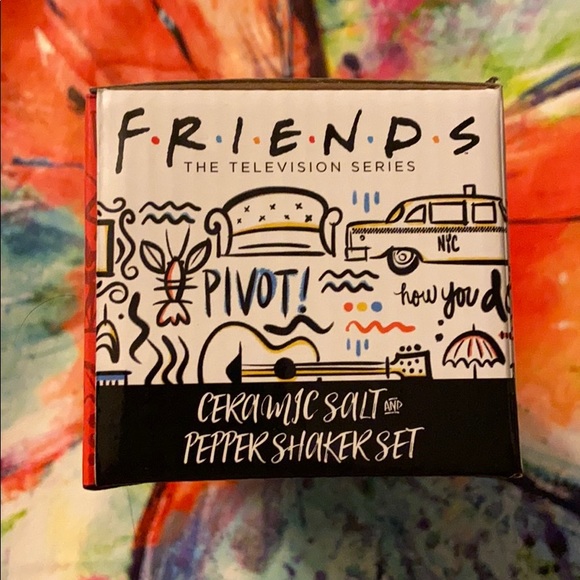 F·R·I·E·N·D·S
THE TELEVISION SERIES
NYC
PIVOT!
how you
CERAMIC SALT AND
PEPPER SHAKER SET